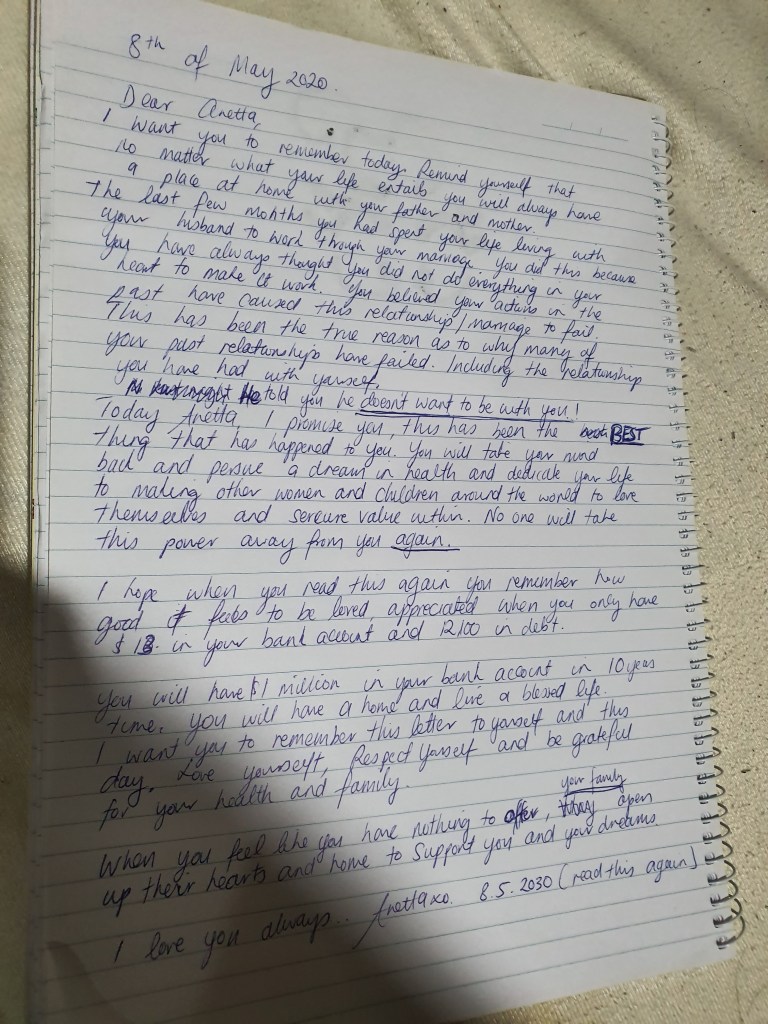 8th of May 2020.
Dear Anetta,
I want you to remember today. Remind yourself that
no matter what your life entails you will always have
a place at home with your father and mother.
The last few months you had spent your life living with
your husband to work through your marriage. You did this because
you have always thought you did not do everything in your
heart to make it work. You believed your actions in the
past have caused this relationship/marriage to fail.
This has been the true reason as to why many of
your past relationships have failed. Including the relationship
you have had with yourself.
He told you he doesn't want to be with you!
Today Anetta, I promise you, this has been the BEST
thing that has happened to you. You will take your mind
back and persue a dream in health and dedicate your life
to making other women and children around the world to love
themselves and sereure value within. No one will take
this power away from you again.
I hope when you read this again you remember how
good it feels to be loved appreciated when you only have
$ 13. in your bank account and 12,100 in debt.
You will have $1 million in your bank account in 10 years
time. You will have a home and live a blessed life.
I want you to remember this letter to yourself and this
day. Love yourself, Respect yourself and be grateful
for your health and family.
your family
When you feel like you have nothing to offer, open
up their hearts and home to support you and your dreams.
I love you always.. Anetta xo. 8.5.2030 (read this again)